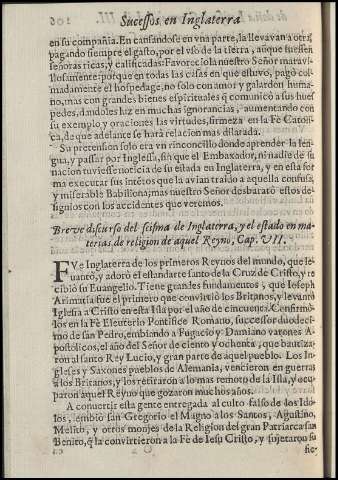 Sucessos en Inglaterra
en su compañia. En cansandose en vna parte, la lleuauan a otra,
pagando siempre el gasto, por el vso de la tierra, aũque fuessen
señoras ricas, y calificadas: Fauoreciola nuestro Señor maraui-
llosamente porque en todas las casas en que estuvo, pagò col-
madamente el hospedage, no solo con amor y galardon huma-
no, mas con grandes bienes espirituales q̃ comunicò a sus hues-
pedes, dandoles luz en muchas ignorancias, aumentando con
su exemplo y oraciones las virtudes, firmeza en la Fè Catoli-
ca, de que adelante se harà relacion mas dilatada.
Su pretension solo era vn rinconcillo donde aprender la len-
gua, y passar por Inglesa, sin que el Embaxador, ni nadie de su
nacion tuviesse noticia de su estada en Inglaterra, y en esta for
ma executar sus intẽtos que la avian traido a aquella confusa,
y miserable Babilonia; mas nuestro Señor desbaratò estos de-
signios con los accidentes que veremos.
Breve discurso del scisma de Inglaterra, y el estado en ma-
terias de religion de aquel Reyno, Cap. VII.
FVe Inglaterra de los primeros Reynos del mundo, que le-
uantò, y adorò el estandarte santo de la Cruz de Cristo, y re
cibiò su Euangelio. Tiene grandes fundamentos, que Ioseph
Arimatia fue el primero que convirtiò los Britanos, y leuantò
Iglesia a Cristo en esta Isla por el año de cincuenta. Confirmò-
los en la Fè Eleuterio Pontifice Romano, successor duodeci-
mo de san Pedro, embiando a Fugucio y Damiano varones A-
postolicos, el año del Señor de ciento y ochenta, que bautiza-
ron al santo Rey Lucio, y gran parte de aquel pueblo. Los In-
gleses y Saxones pueblos de Alemania, vencieron en guerras
a los Britanos, y los retiraron a lo mas remoto de la Isla, y ocu-
paron aquel Reyno que gozaron muchos años.
A convertir esta gente entregada al culto falso de los Ido-
los, embiò san Gregorio el Magno a los Santos, Agustino,
Melito, y otros monjes de la Religion del gran Patriarca san
Benito, q̃ la convirtieron a la Fè de Iesu Cristo, y sujetaron su